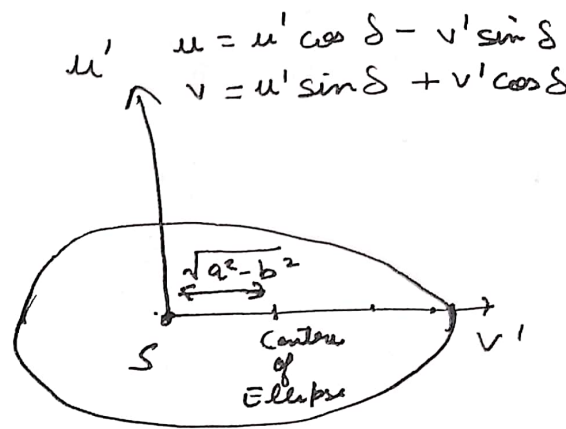 u' u = u' cos δ - v' sin δ
v = u' sin δ + v' cos δ
√a²-b²
S
Centre
of
Ellipse
v'